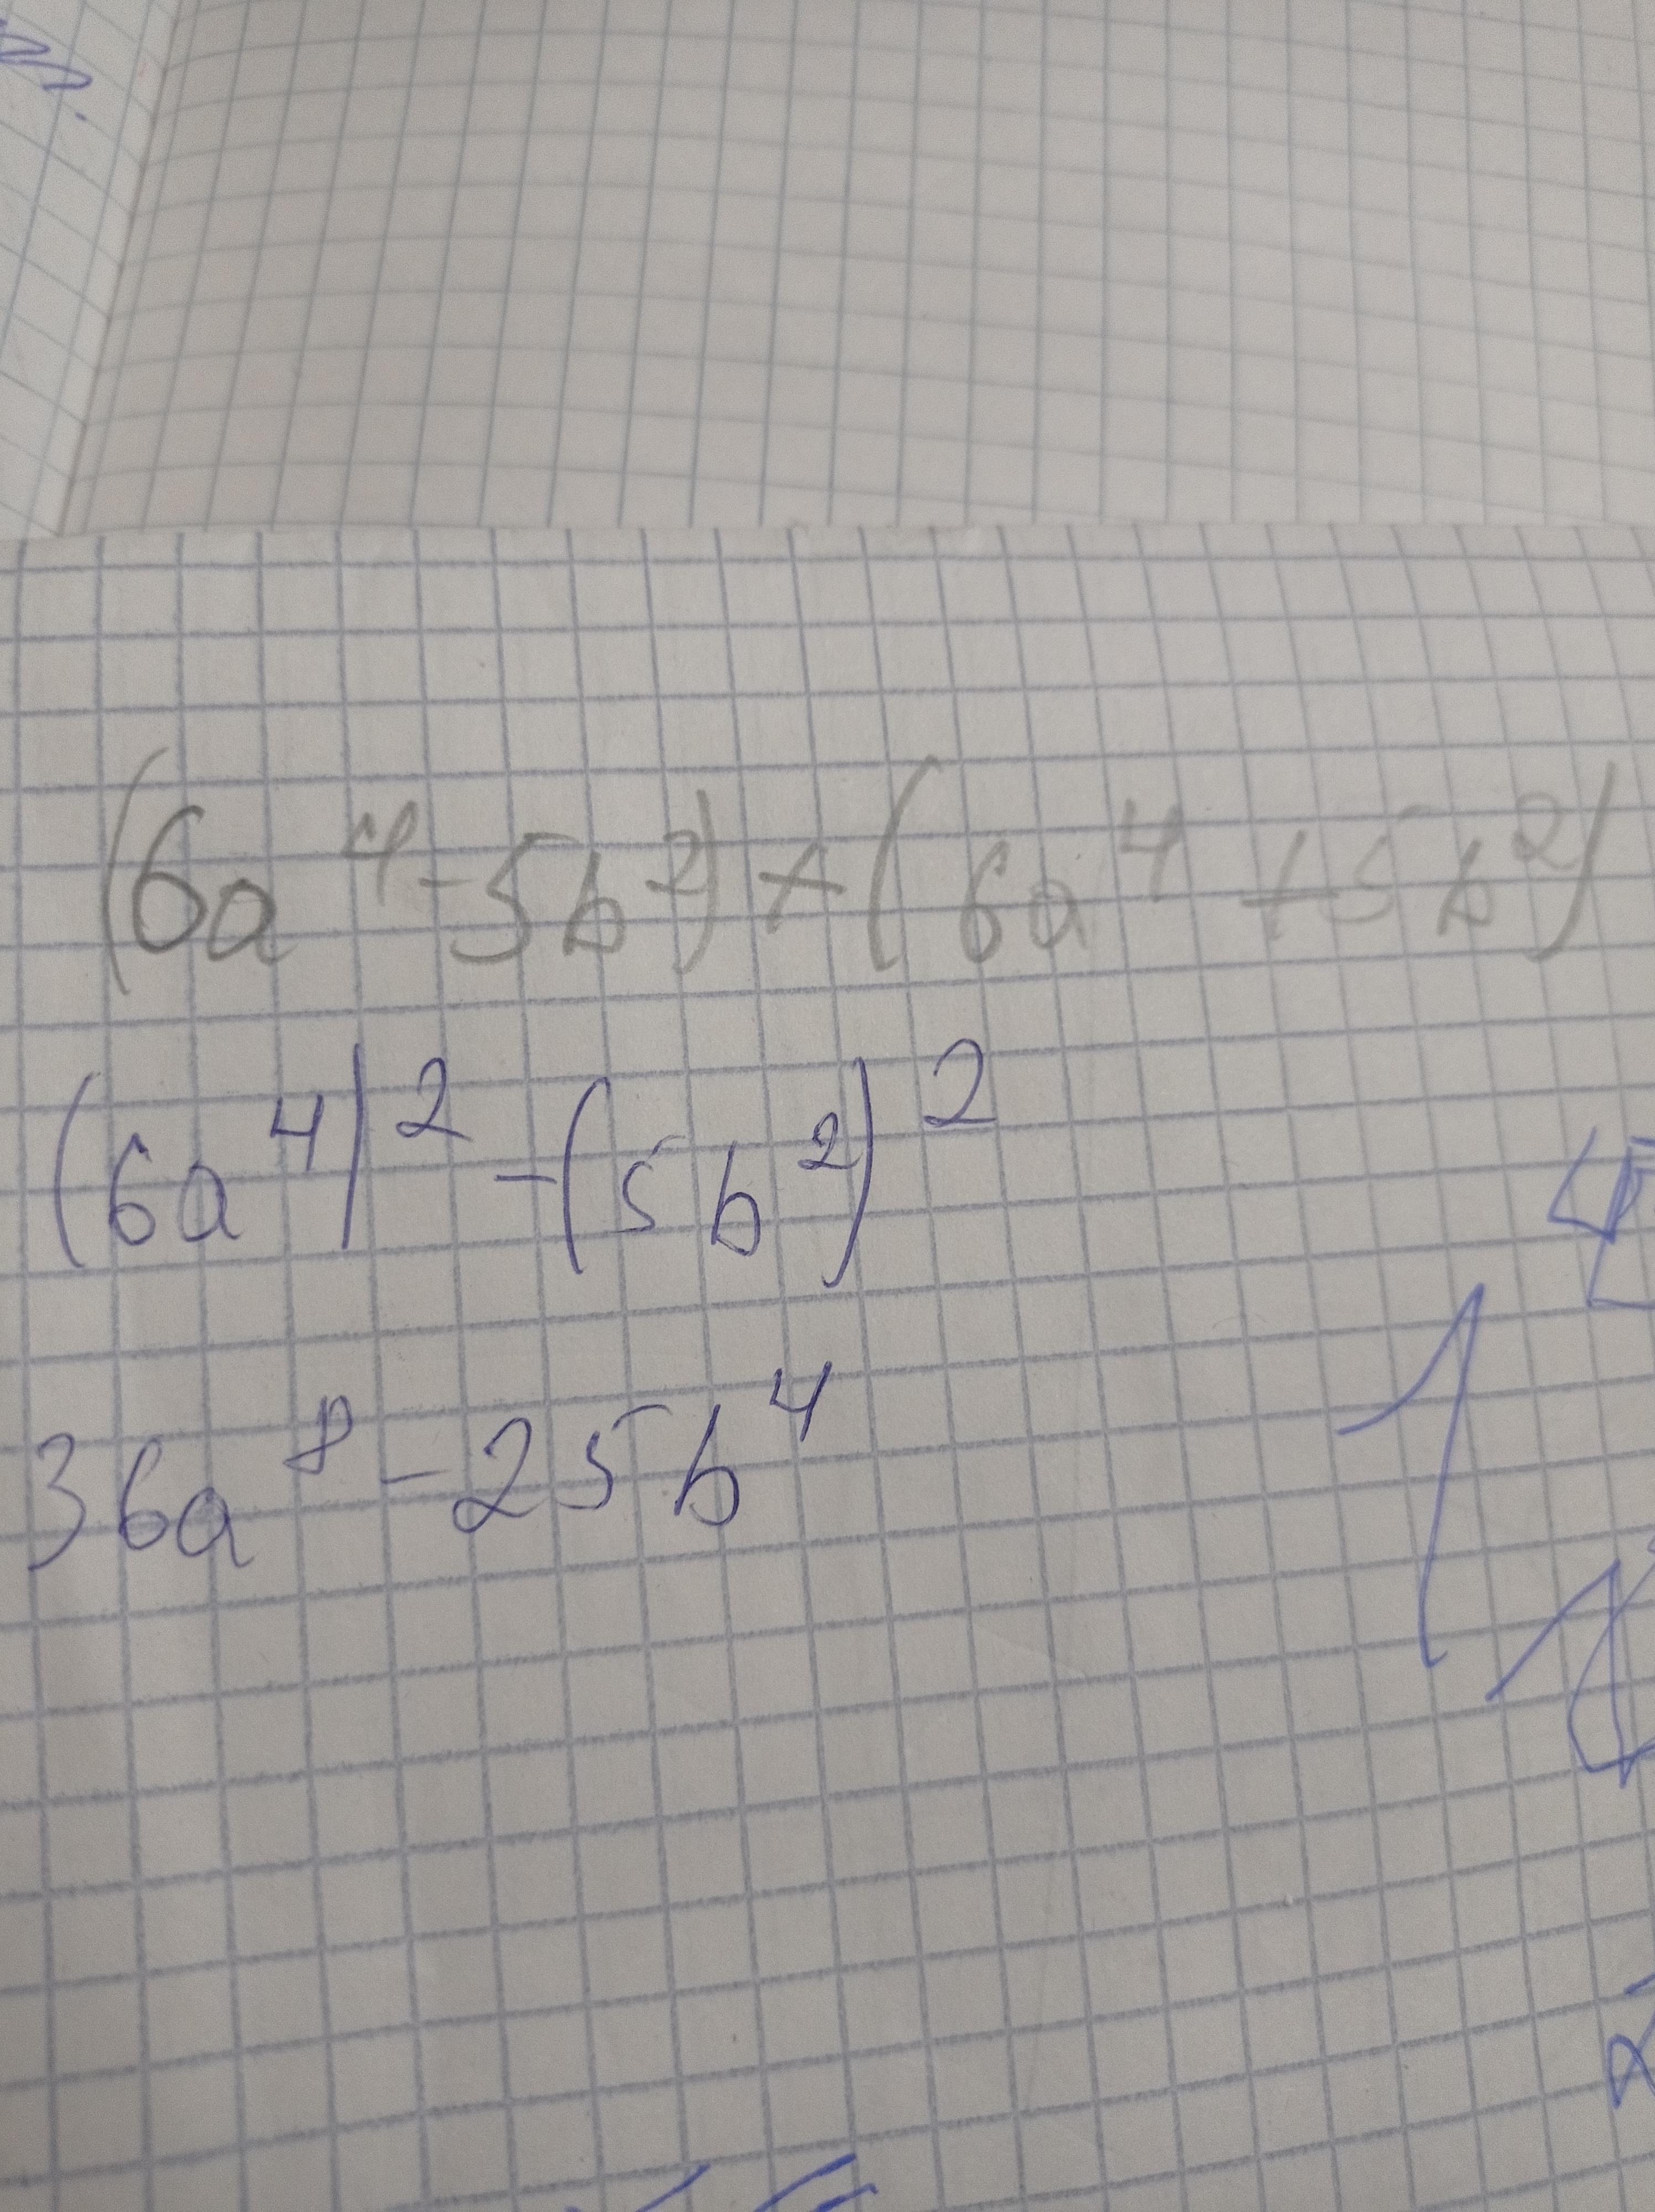 (6a⁴-5b²)×(6a⁴+5b²)
(6a⁴)²-(5b²)²
36a⁸-25b⁴